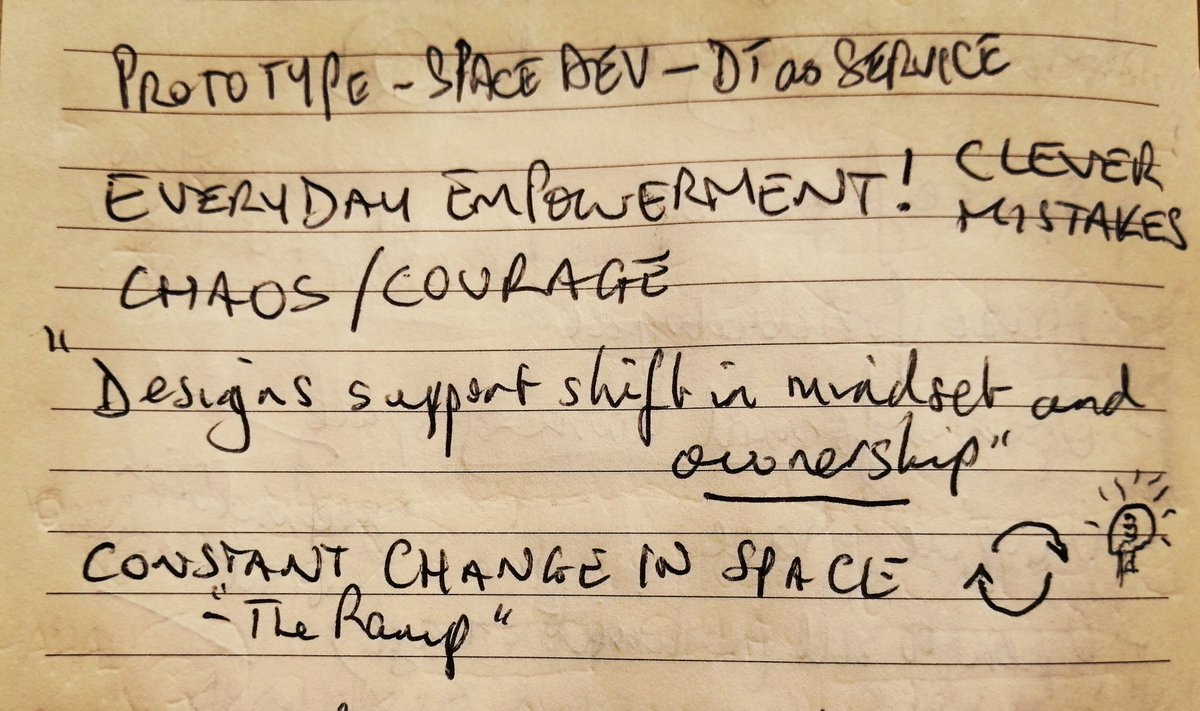 PROTOTYPE - SPACE DEV - DT as SERVICE
EVERYDAY EMPOWERMENT! CLEVER MISTAKES
CHAOS / COURAGE
"Designs support shift in mindset and
ownership"
CONSTANT CHANGE IN SPACE
- "The Ramp"